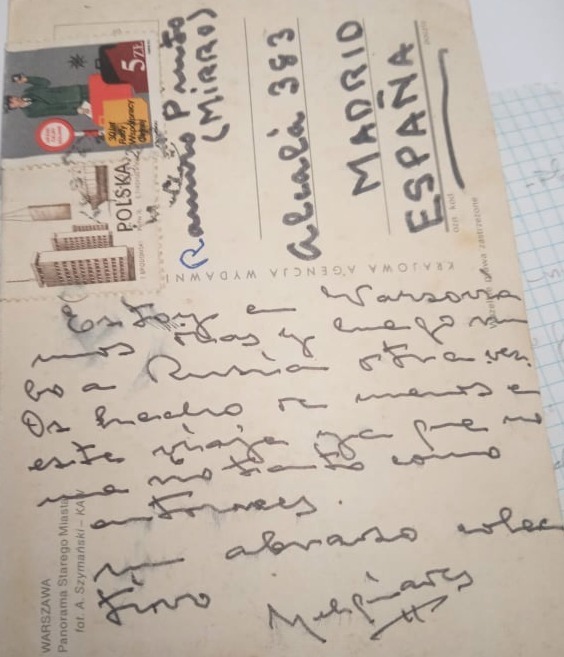 WARSZAWA
Panorama Starego Miasta
fot. A. Szymański – KAW
Estoy en Warsovia
unos dias y luego su
bo a Rusia otra vez.
Os hecho de menos en
este viaje ya que no
tanto como
entonces.
Un abrazo colec
tivo
KRAJOWA AGENCJA WYDAWNI
POLSKA
5 ZŁ
Ramiro Pinto
(MiRRO)
Alcalá 383
MADRID
ESPAÑA
Wszelkie prawa zastrzeżone